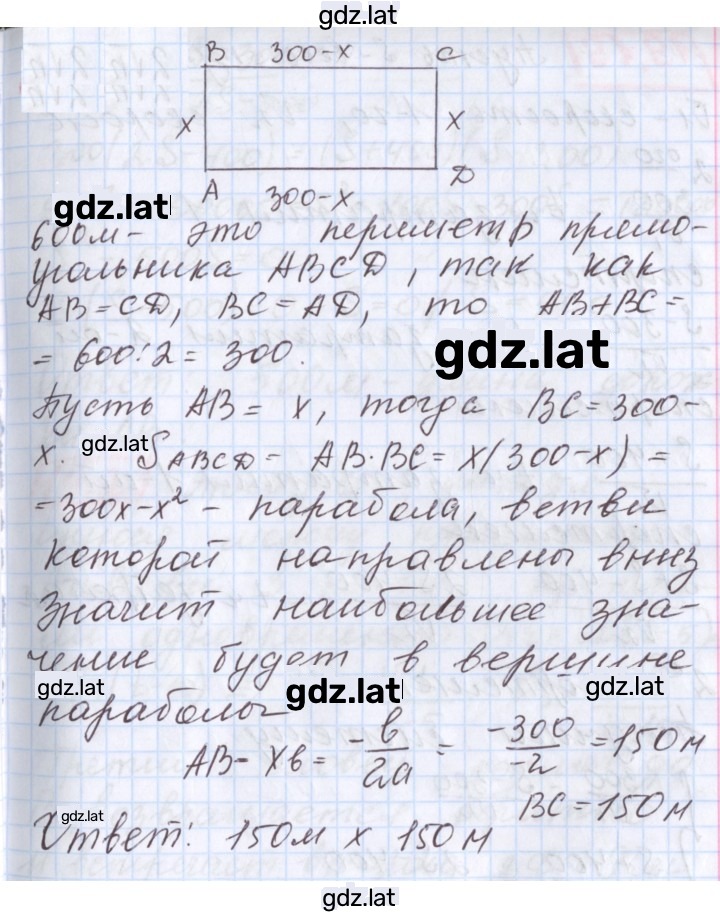 gdz.lat
B 300-x C
x x
A 300-x D
gdz.lat
600м- это периметр прямо-
угольника ABCD, так как
AB=CD, BC=AD, то AB+BC=
= 600:2= 300.
gdz.lat
Пусть AB= x, тогда BC=300-
x. gdz.lat SABCD= AB·BC= x(300-x) =
=300x-x² - парабола, ветви
которой направлены вниз
Значит наибольшее зна-
чение будет в вершине
gdz.lat gdz.lat gdz.lat
параболы
AB= xв= -в/2a = -300/-2 =150м
BC=150м
gdz.lat
Ответ: 150м x 150м
gdz.lat